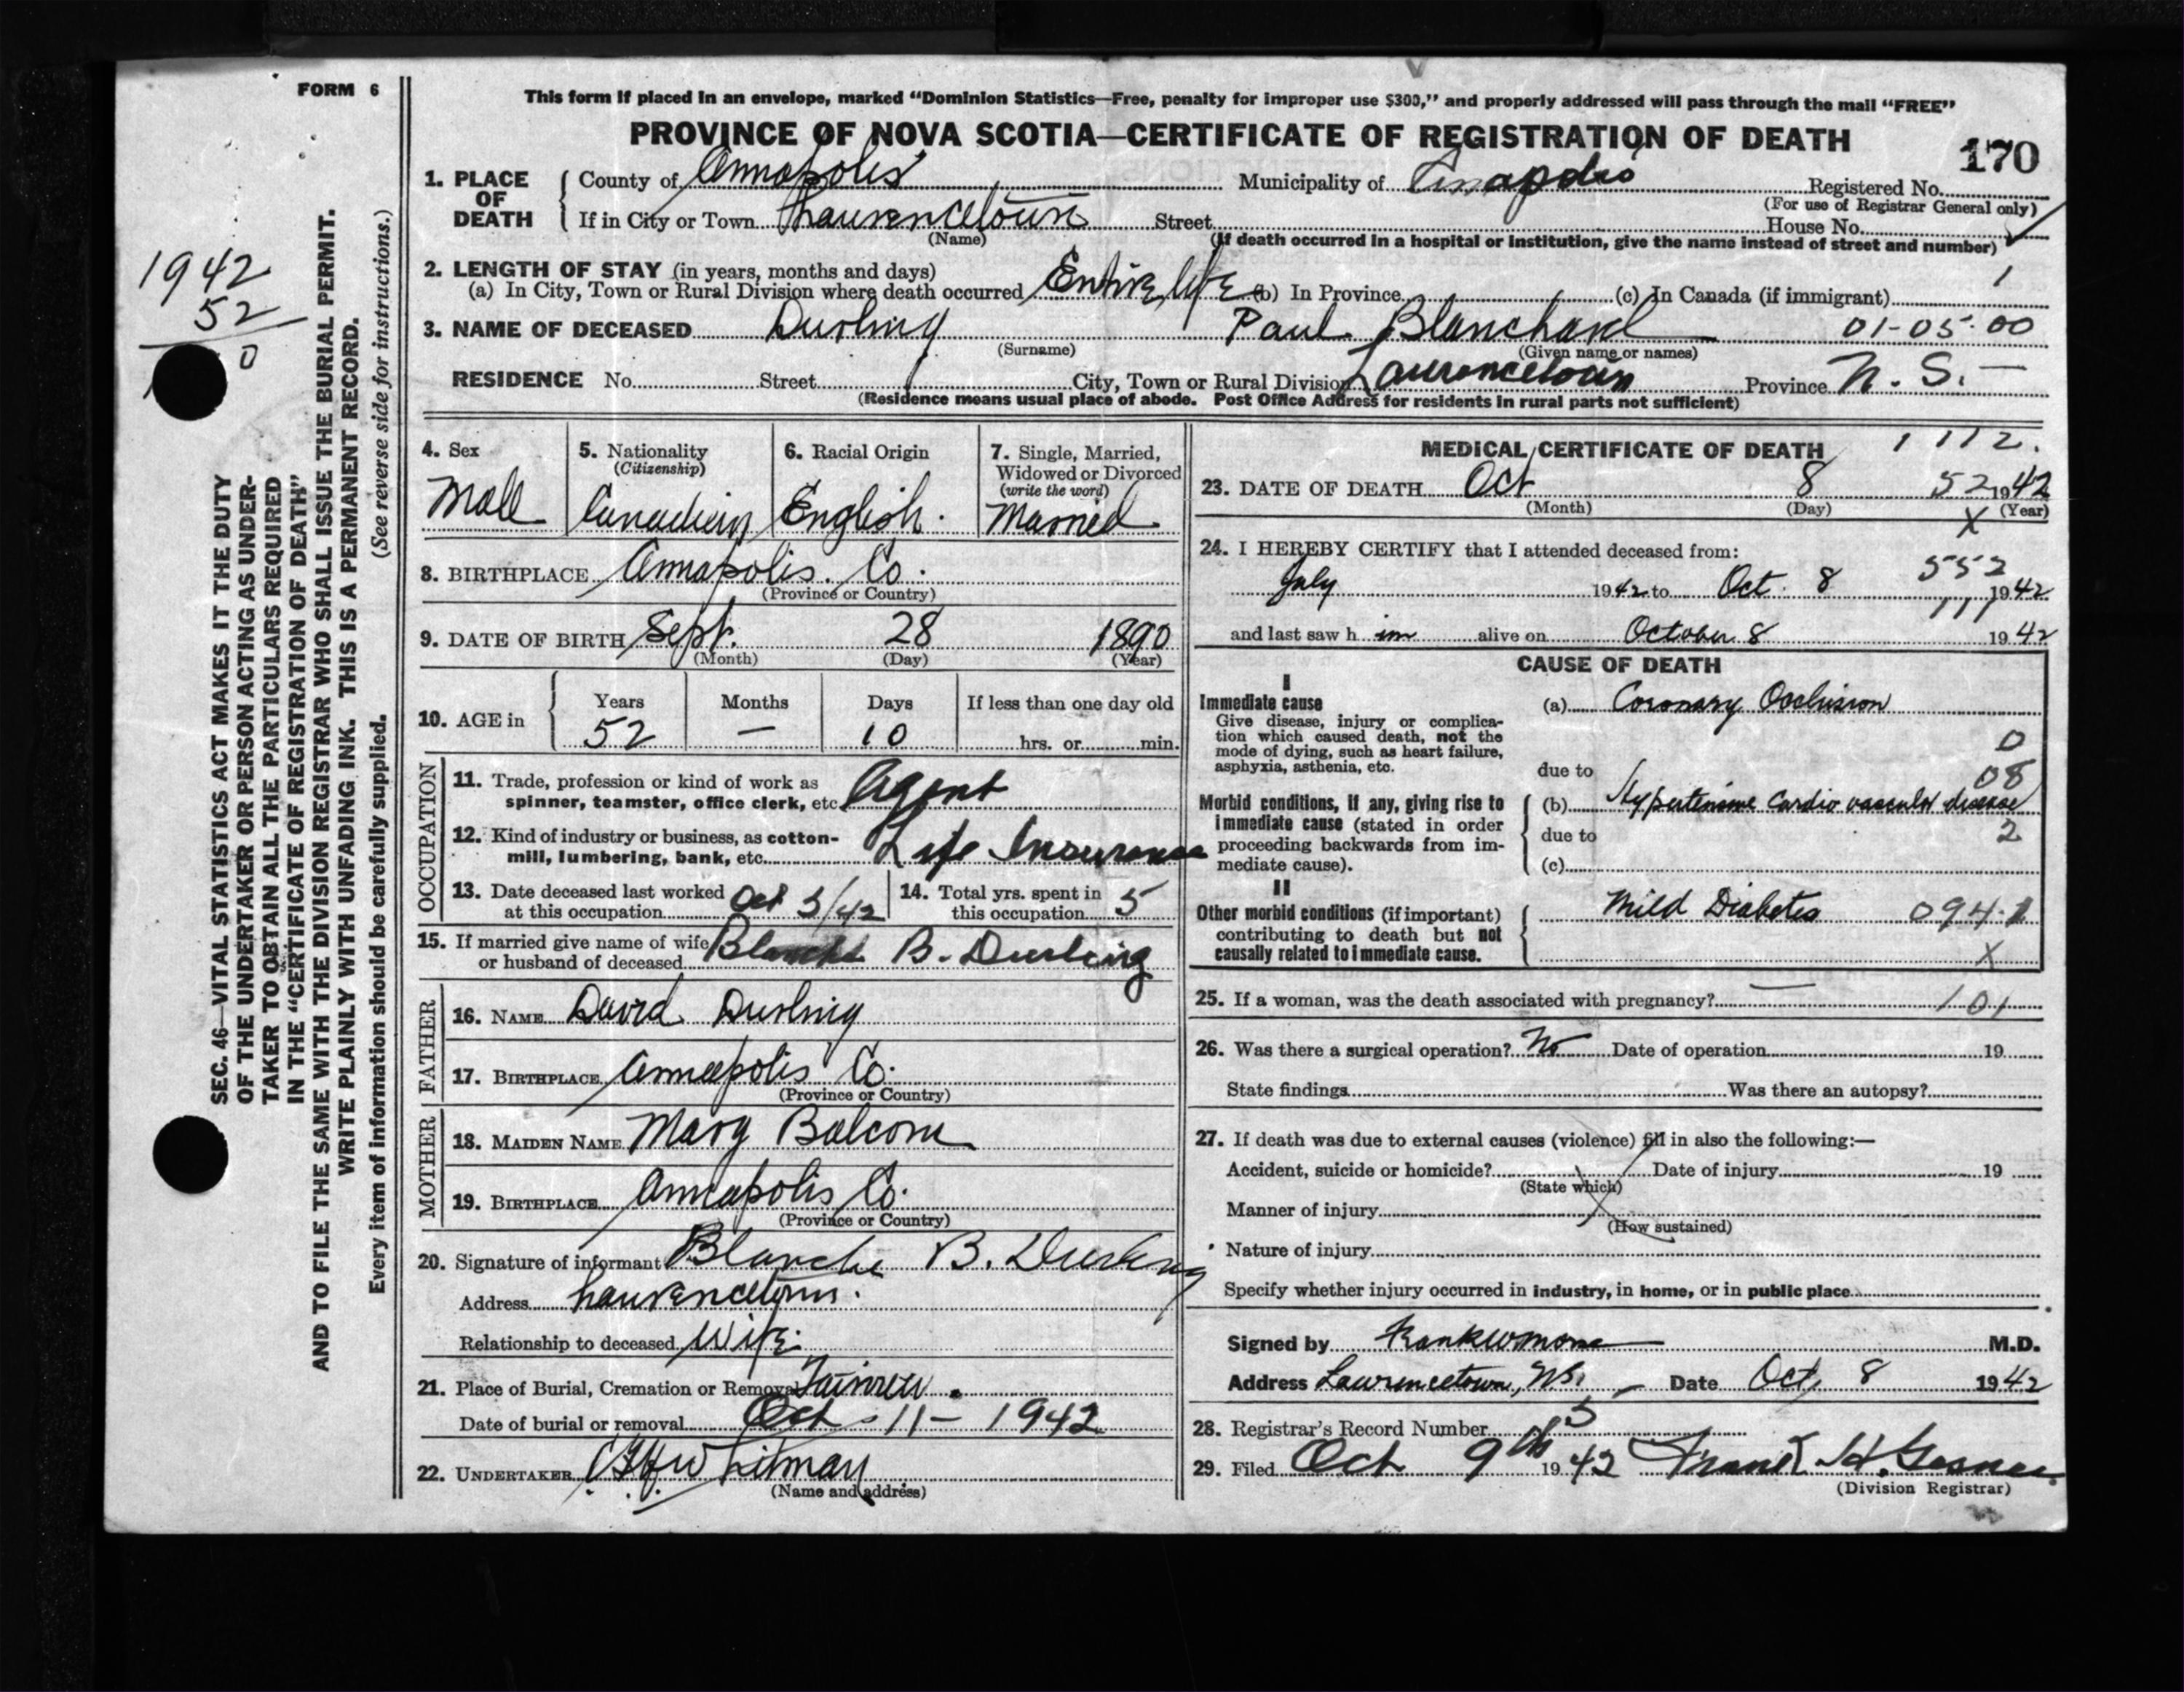 FORM 6
This form if placed in an envelope, marked “Dominion Statistics—Free, penalty for improper use $300,” and properly addressed will pass through the mail “FREE”
PROVINCE OF NOVA SCOTIA—CERTIFICATE OF REGISTRATION OF DEATH
170
1. PLACE OF DEATH
County of Annapolis Municipality of Annapolis Registered No.
(For use of Registrar General only)
If in City or Town Lawrencetown Street House No.
(Name) (If death occurred in a hospital or institution, give the name instead of street and number)
2. LENGTH OF STAY (in years, months and days)
(a) In City, Town or Rural Division where death occurred Entire life (b) In Province (c) In Canada (if immigrant)
1
3. NAME OF DECEASED Durling Paul Blanchard 01-05-00
(Surname) (Given name or names)
RESIDENCE No. Street City, Town or Rural Division Lawrencetown Province N. S. —
(Residence means usual place of abode. Post Office Address for residents in rural parts not sufficient)
1942
52
0
SEC. 46—VITAL STATISTICS ACT MAKES IT THE DUTY
OF THE UNDERTAKER OR PERSON ACTING AS UNDER-
TAKER TO OBTAIN ALL THE PARTICULARS REQUIRED
IN THE “CERTIFICATE OF REGISTRATION OF DEATH”
AND TO FILE THE SAME WITH THE DIVISION REGISTRAR WHO SHALL ISSUE THE BURIAL PERMIT.
WRITE PLAINLY WITH UNFADING INK. THIS IS A PERMANENT RECORD.
Every item of information should be carefully supplied. (See reverse side for instructions.)
4. Sex
Male
5. Nationality
(Citizenship)
Canadian
6. Racial Origin
English.
7. Single, Married,
Widowed or Divorced
(write the word)
Married
8. BIRTHPLACE Annapolis. Co.
(Province or Country)
9. DATE OF BIRTH Sept. 28 1890
(Month) (Day) (Year)
10. AGE in
Years Months Days If less than one day old
52 — 10 hrs. or min.
OCCUPATION
11. Trade, profession or kind of work as
spinner, teamster, office clerk, etc. Agent
12. Kind of industry or business, as cotton-
mill, lumbering, bank, etc. Life Insurance
13. Date deceased last worked
at this occupation Oct 3/42
14. Total yrs. spent in
this occupation 5
15. If married give name of wife
or husband of deceased Blanche B. Durling
FATHER
16. NAME David Durling
17. BIRTHPLACE Annapolis Co.
(Province or Country)
MOTHER
18. MAIDEN NAME Mary Balcom
19. BIRTHPLACE Annapolis Co.
(Province or Country)
20. Signature of informant Blanche B. Durling
Address Lawrencetown.
Relationship to deceased Wife.
21. Place of Burial, Cremation or Removal
Date of burial or removal Oct - 11 - 1942
22. UNDERTAKER Whitman
(Name and address)
MEDICAL CERTIFICATE OF DEATH 1112.
23. DATE OF DEATH Oct 8 52 1942
(Month) (Day) (Year)
X
24. I HEREBY CERTIFY that I attended deceased from:
552
July 1942 to Oct. 8 1942
111
and last saw him alive on October 8 1942
CAUSE OF DEATH
I
Immediate cause
Give disease, injury or complica-
tion which caused death, not the
mode of dying, such as heart failure,
asphyxia, asthenia, etc.
(a) Coronary Occlusion
0
due to 08
Morbid conditions, if any, giving rise to
immediate cause (stated in order
proceeding backwards from im-
mediate cause).
(b) Hypertensive Cardio vascular disease
due to 2
(c)
II
Other morbid conditions (if important)
contributing to death but not
causally related to immediate cause.
Mild Diabetes 094.1
X
25. If a woman, was the death associated with pregnancy? — 101
26. Was there a surgical operation? No Date of operation 19
State findings Was there an autopsy?
27. If death was due to external causes (violence) fill in also the following:—
Accident, suicide or homicide? Date of injury 19
(State which)
Manner of injury
(How sustained)
Nature of injury
Specify whether injury occurred in industry, in home, or in public place
Signed by M.D.
Address Lawrencetown, NS. Date Oct, 8 1942
28. Registrar’s Record Number 5
29. Filed Oct 9th 1942 Frank H. Gesner
(Division Registrar)